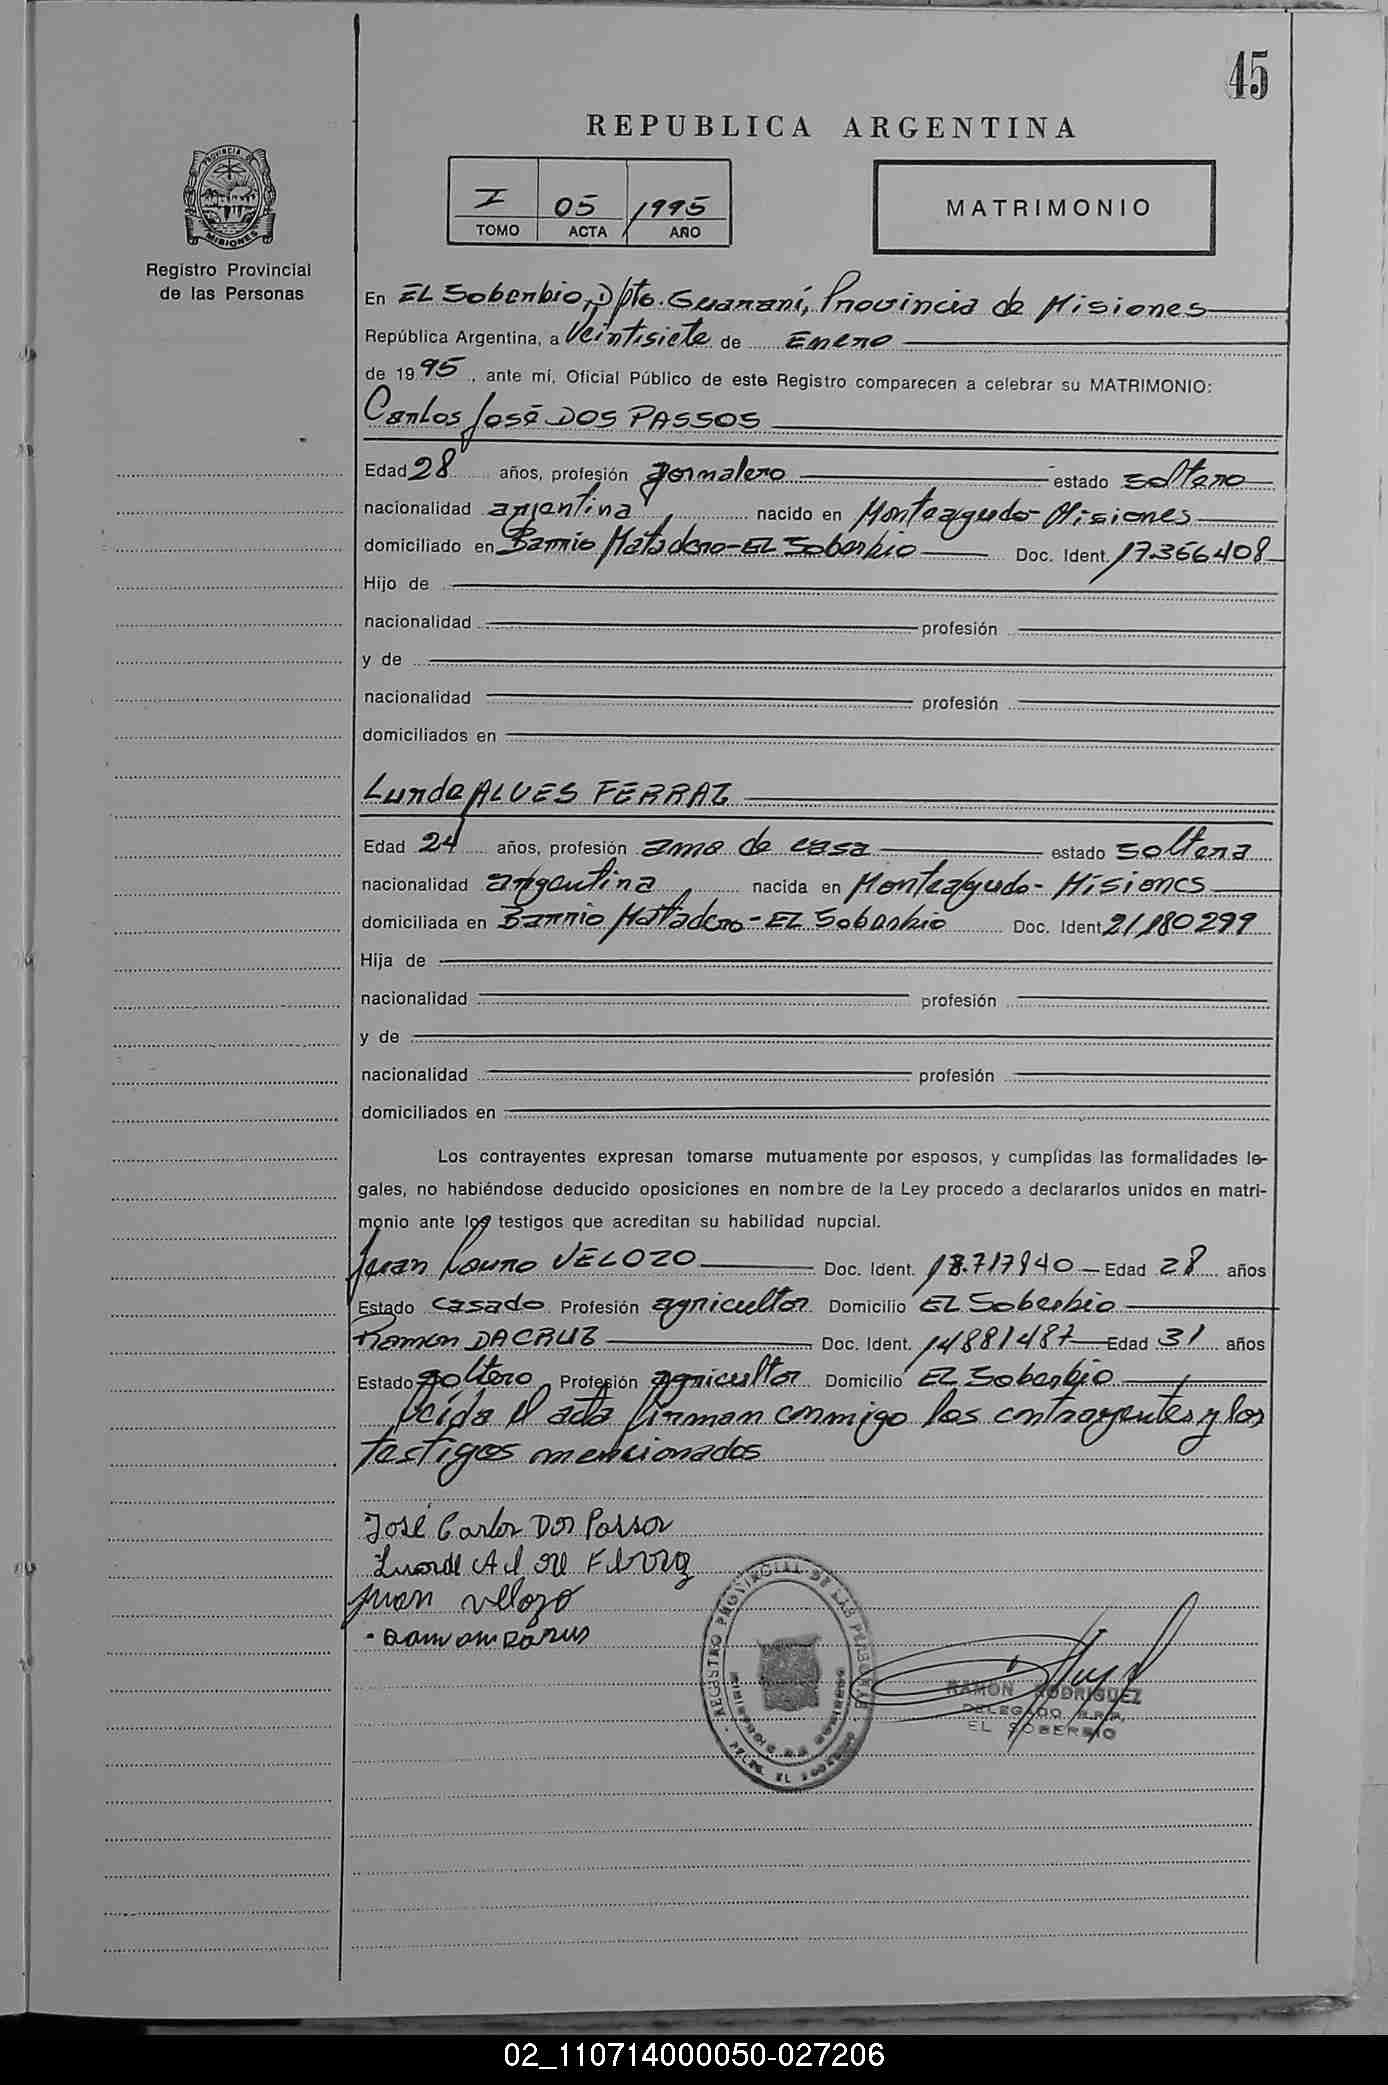 45
REPUBLICA ARGENTINA
I 05 1995
TOMO ACTA AÑO
MATRIMONIO
PROVINCIA DE
MISIONES
Registro Provincial
de las Personas
En EL Soberbio, Dpto. Guaraní, Provincia de Misiones
República Argentina, a Veintisiete de Enero
de 1995, ante mí, Oficial Público de este Registro comparecen a celebrar su MATRIMONIO:
Carlos José DOS PASSOS
Edad 28 años, profesión jornalero estado soltero
nacionalidad argentina nacido en Monteagudo-Misiones
domiciliado en Barrio Matadero-EL Soberbio Doc. Ident. 17.366408
Hijo de
nacionalidad profesión
y de
nacionalidad profesión
domiciliados en
Lurde ALVES FERRAZ
Edad 24 años, profesión ama de casa estado soltera
nacionalidad argentina nacida en Monteagudo- Misiones
domiciliada en Barrio Matadero-EL Soberbio Doc. Ident 21180299
Hija de
nacionalidad profesión
y de
nacionalidad profesión
domiciliados en
Los contrayentes expresan tomarse mutuamente por esposos, y cumplidas las formalidades le-
gales, no habiéndose deducido oposiciones en nombre de la Ley procedo a declararlos unidos en matri-
monio ante los testigos que acreditan su habilidad nupcial.
Juan Lauro VELOZO Doc. Ident. Edad 28 años
Estado casado Profesión agricultor Domicilio EL Soberbio
Ramon DACRUZ Doc. Ident. 14881487 Edad 31 años
Estado soltero Profesión agricultor Domicilio EL Soberbio
Leída el acta firman conmigo los contrayentes y los
testigos mencionados
José Carlos Dos Passos
Juan Vellozo
REGISTRO PROVINCIAL DE LAS PERSONAS
MINISTERIO DE GOBIERNO
DELEG. EL SOBERBIO
RAMON RODRIGUEZ
DELEGADO R.P.P.
EL SOBERBIO
02_110714000050-027206